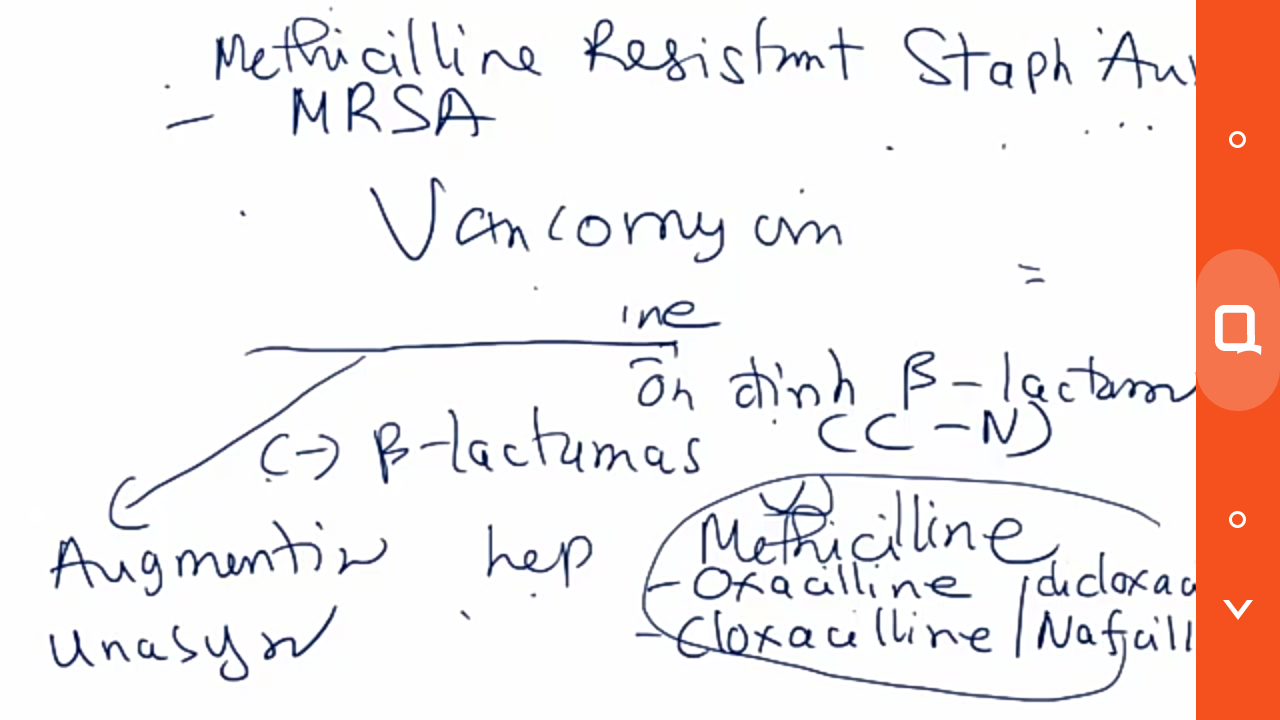 Methicilline Resistant Staph Au
- MRSA
Vancomycin
=
ine
ổn định β-lactam
(C-N)
(-) β-lactamas
Augmentin hẹp Methicilline
- Oxacilline / dicloxac
Unasyn - Cloxacilline / Nafcill